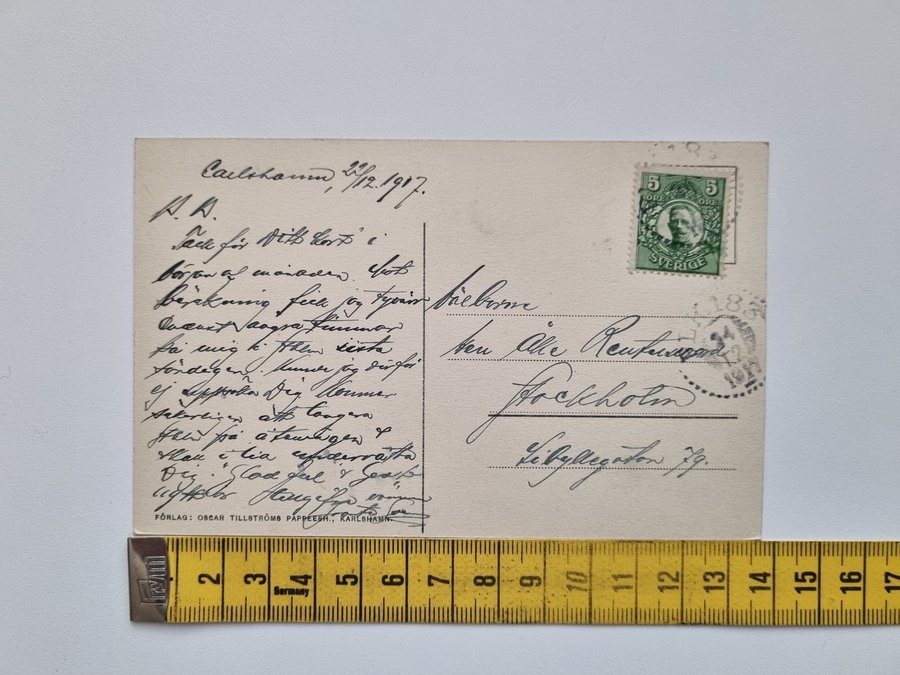 Carlshamn, 22/12. 1917.
B. B.
Tack för Ditt kort i
början af månaden. Mot
beräkning fick jag tyvärr
endast några timmar
på mig i Sthlm sista
söndagen. Kunde jag därför
ej uppsöka Dig. Kommer
säkerligen att tangera
Sthlm på återvägen &
skall i tid underrätta
Dig. "God Jul" & Gott
Nytt år
vännen
FÖRLAG: OSCAR TILLSTRÖMS PAPPERSH., KARLSHAMN.
5 5
ÖRE ÖRE
SVERIGE
Välborne
Herr Åke
Stockholm
Sibyllegatan 79.
1917
2 3 4 5 6 7 8 9 10 11 12 13 14 15 16 17
Germany